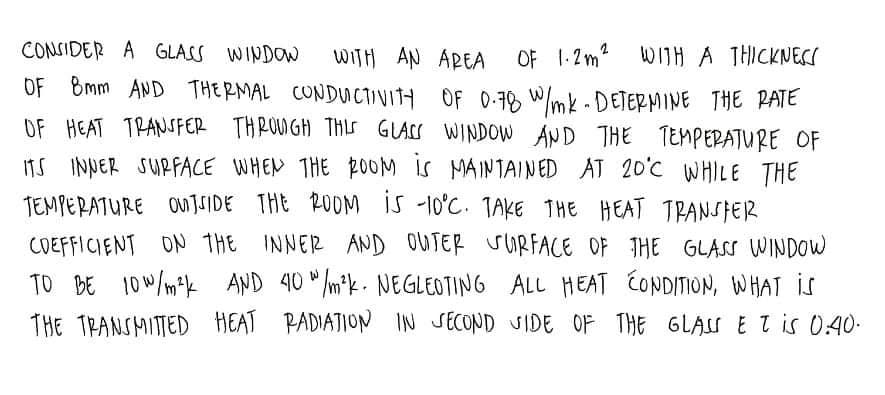 CONSIDER A GLASS WINDOW WITH AN AREA OF 1.2m² WITH A THICKNESS
OF 8mm AND THERMAL CONDUCTIVITY OF 0.78 W/mk. DETERMINE THE RATE
OF HEAT TRANSFER THROUGH THIS GLASS WINDOW AND THE TEMPERATURE OF
ITS INNER SURFACE WHEN THE ROOM is MAINTAINED AT 20°C WHILE THE
TEMPERATURE OUTSIDE THE ROOM is -10°C. TAKE THE HEAT TRANSFER
COEFFICIENT ON THE INNER AND OUTER SURFACE OF THE GLASS WINDOW
TO BE 10W/m²k AND 40 W/m²k. NEGLECTING ALL HEAT CONDITION, WHAT is
THE TRANSMITTED HEAT RADIATION IN SECOND SIDE OF THE GLASS E τ is 0.40.